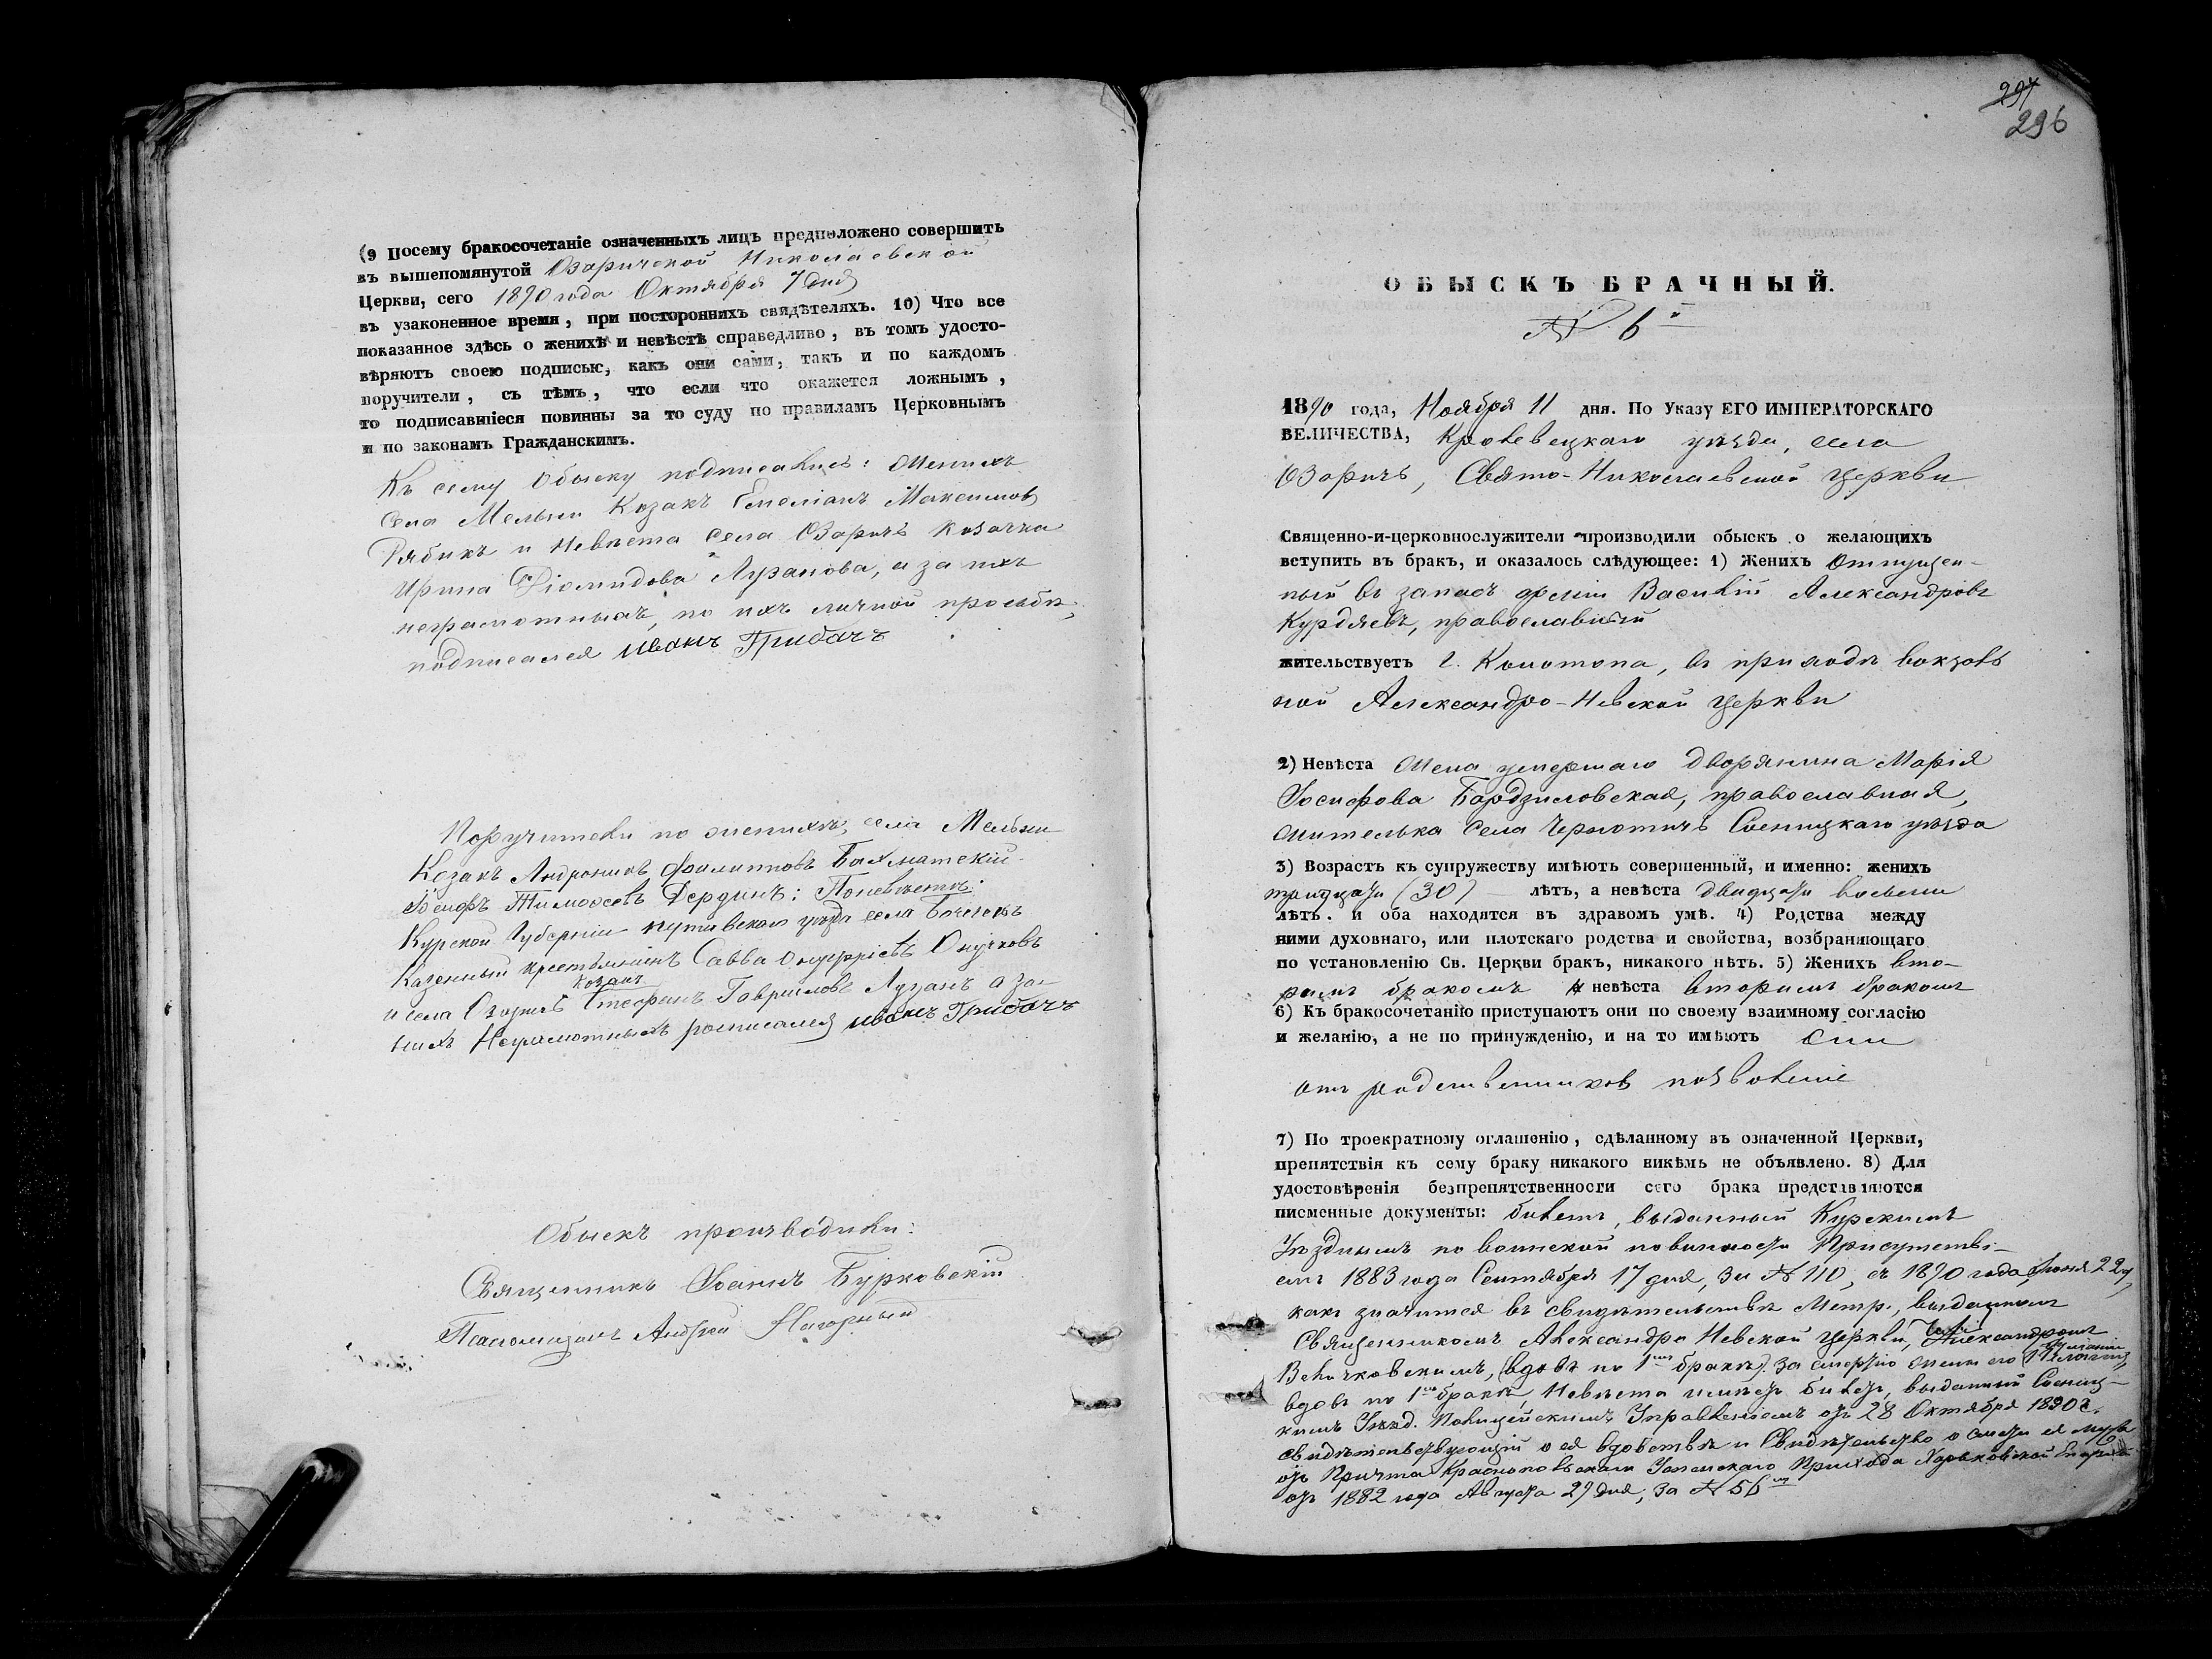 (9 Посему бракосочетаніе означенныхъ лицъ предположено совершить
въ вышепомянутой Озаричской Николаевской
Церкви, сего 1890 года Октября 7 дня
въ узаконенное время, при постороннихъ свидѣтеляхъ. 10) Что все
показанное здѣсь о женихѣ и невѣстѣ справедливо, въ томъ удосто-
вѣряютъ своею подписью, какъ они сами, такъ и по каждомъ
поручители, съ тѣмъ, что если что окажется ложнымъ,
то подписавшіеся повинны за то суду по правиламъ Церковнымъ
и по законамъ Гражданскимъ.
Къ сему обыску подписались: Женихъ
села Мельни Козакъ Емеліанъ Максимовъ
Рябикъ и Невѣста села Озаричъ козачка
Ирина Діомидова Лузанова, а за нихъ
неграмотныхъ, по ихъ личной просьбѣ,
подписался Иванъ Грибачъ
Поручители по женихѣ, села Мельни
Козакъ Андроникъ Филипповъ Бахматскій
Іосифъ Тимофеевъ Дердинъ: По невѣстѣ:
Курской Губерніи путивльского уѣзда села
Казенный крестьянинъ Савва Онуфріевъ Онучковъ
козакъ
и села Озаричъ Стефанъ Гавриловъ Лузанъ а за
нихъ Неграмотныхъ росписался Иванъ Грибачъ
Обыскъ производили:
Священникъ Іоаннъ Бурковскій
Псаломщикъ Андрей Нагорный
297
296
ОБЫСКЪ БРАЧНЫЙ.
№ 6й
1890 года, Ноября 11 дня. По Указу ЕГО ИМПЕРАТОРСКАГО
ВЕЛИЧЕСТВА, Кролевецкаго уѣзда, села
Озаричъ, Свято-Николаевской церкви
Священно-и-церковнослужители производили обыскъ о желающихъ
вступить въ бракъ, и оказалось слѣдующее: 1) Женихъ Отпущен-
ный въ запасъ арміи Василій Александровъ
Курдяевъ, православный
жительствуетъ г. Конотопа, въ приходѣ вокзаль
ной Александро-Невской церкви
2) Невѣста Жена умершаго дворянина Марія
Іосифова Бордзиловская, православная,
жителька села Чернотичъ Сосницкаго уѣзда
3) Возрастъ къ супружеству имѣютъ совершенный, и именно: женихъ
тридцати (30) — лѣтъ, а невѣста двадцати восьми
лѣтъ. и оба находятся въ здравомъ умѣ. 4) Родства между
ними духовнаго, или плотскаго родства и свойства, возбраняющаго
по установленію Св. Церкви бракъ, никакого нѣтъ. 5) Женихъ вто-
рымъ бракомъ и невѣста вторымъ бракомъ
6) Къ бракосочетанію приступаютъ они по своему взаимному согласію
и желанію, а не по принужденію, и на то имѣютъ они
отъ родственниковъ позволеніе
7) По троекратному оглашенію, сдѣланному въ означенной Церкви,
препятствія къ сему браку никакого никѣмъ не объявлено. 8) Для
удостовѣренія безпрепятственности сего брака представляются
писменные документы: билетъ, выданный Курскимъ
Уѣзднымъ по воинской повинности Присутстві-
емъ 1883 года Сентября 17 дня, за № 110, съ 1890 года Іюня 22 д,
какъ значится въ свидѣтельствѣ Метр., выданномъ
Священникомъ Александро Невской церкви, Александромъ
Величковскимъ, (вдовъ по 1мъ бракѣ). За смертію жены его
вдовъ по 1мъ бракѣ, Невѣста имѣетъ билетъ, выданный Сосниц-
кимъ Уѣзд. Полицейскимъ Управленіемъ отъ 28 Октября 1890 г.
свидѣтельствующій о ея вдовствѣ и Свидѣтельство о смерти ея мужа
отъ Причта Успенскаго Прихода Харьковской Епархіи
отъ 1882 года Августа 29 дня, за № 56мъ